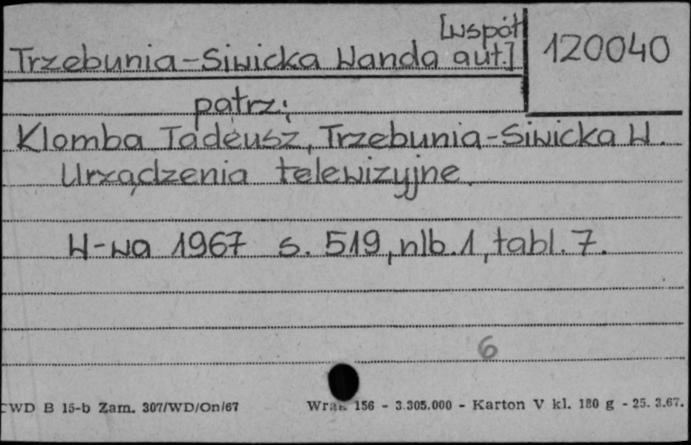 [współ
Trzebunia-Siwicka Wanda aut.] 120040
patrz:
Klomba Tadeusz, Trzebunia-Siwicka W.
Urządzenia telewizyjne.
W-wa 1967 s. 519, nlb. 1, tabl. 7.
6
CWD B 15-b Zam. 307/WD/On/67 156 - 3.305.000 - Karton V kl. 180 g - 25. 3.67.